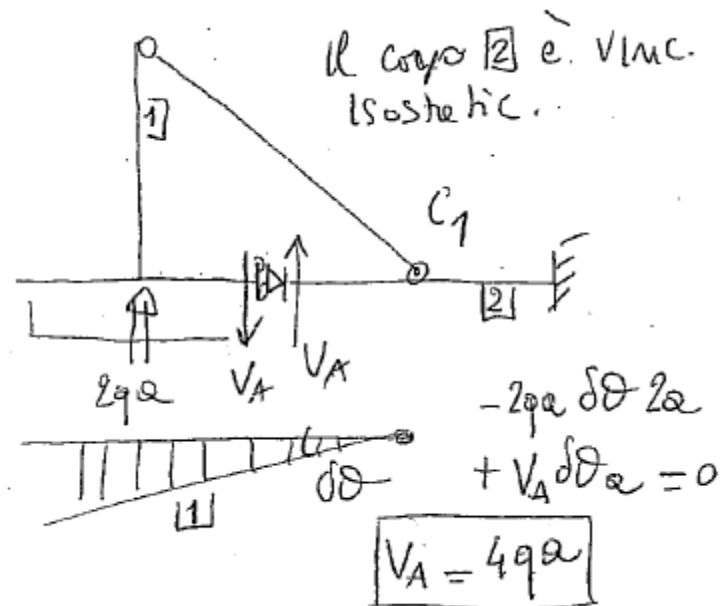 Il corpo 2 è VINC.
ISOSTATIC.
1
C1
2
2qa
VA
VA
-2qa δθ 2a
+ VA δθ a = 0
δθ
1
VA = 4qa